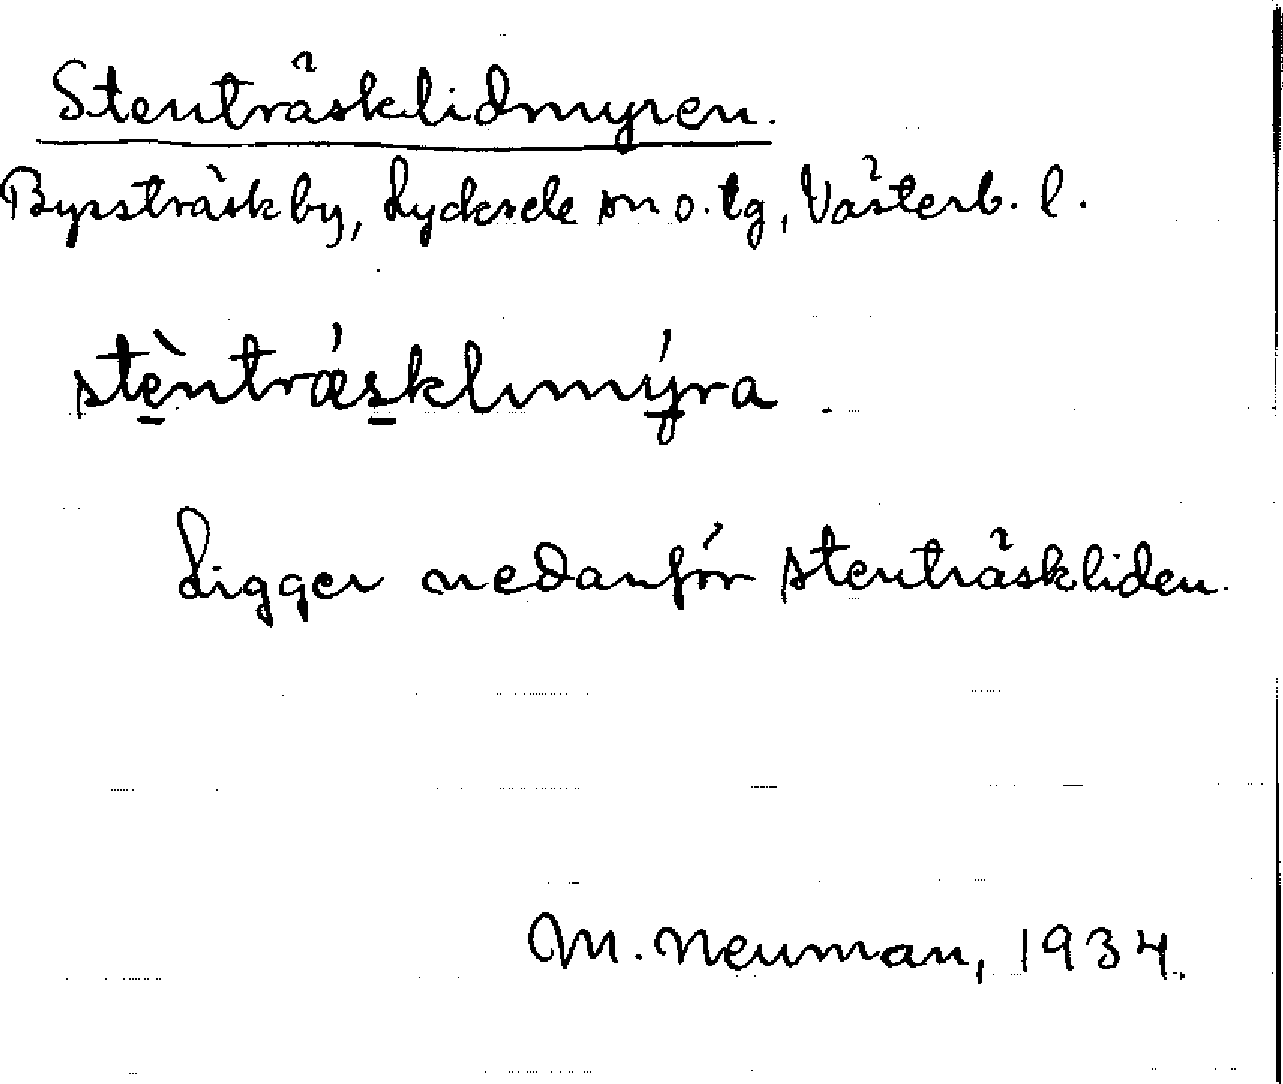 Stenträsklidmyren.
Byssträsk by, Lycksele sn o. tg, Västerb. l.
stèntrǽsklımýra
Ligger nedanför Stenträskliden.
M. Neuman, 1934.